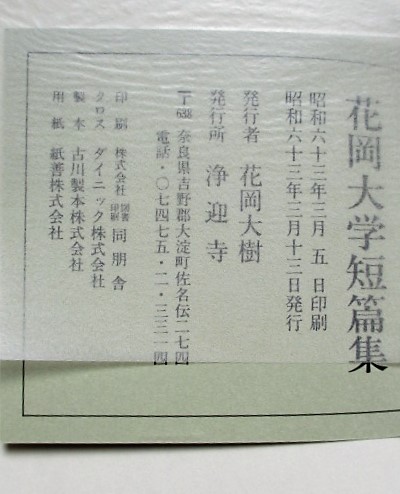 花岡大学短篇集
昭和六十三年三月 五 日印刷
昭和六十三年三月十三日発行
発行者 花岡大樹
発行所 浄迎寺
〒638 奈良県吉野郡大淀町佐名伝二七四
電話・〇七四七五・二一・三三一四
印刷 株式会社 図書印刷 同朋舎
クロス ダイニック株式会社
製本 古川製本株式会社
用紙 紙善株式会社